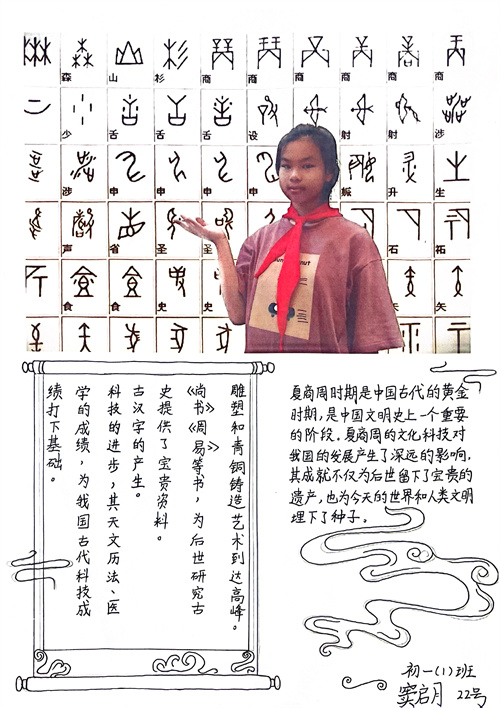 森 山 杉 商 商 商 商 商 商
少 舌 舌 舌 设 射 射 涉
涉 申 申 申 升 生
声 省 圣 圣 石 祏
食 食 史 史 矢
雕塑和青铜铸造艺术到达高峰。
《尚书》《周易》等书，为后世研究古
史提供了宝贵资料。
古汉字的产生。
科技的进步，其天文历法、医
学的成绩，为我国古代科技成
绩打下基础。
夏商周时期是中国古代的黄金
时期，是中国文明史上一个重要
的阶段。夏商周的文化科技对
我国的发展产生了深远的影响，
其成就不仅为后世留下了宝贵的
遗产，也为今天的世界和人类文明
埋下了种子。
初一(1)班
窦启月 22号